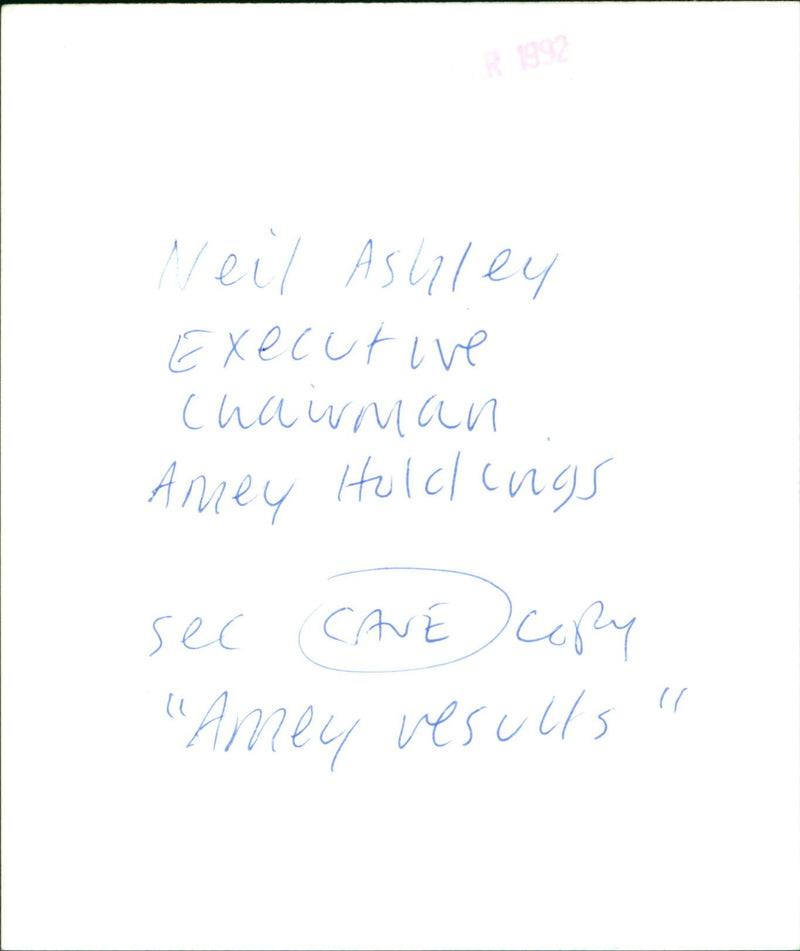 R 1992
Neil Ashley
Executive
Chairman
Amey Holdings
see CAVE copy
"Amey results"